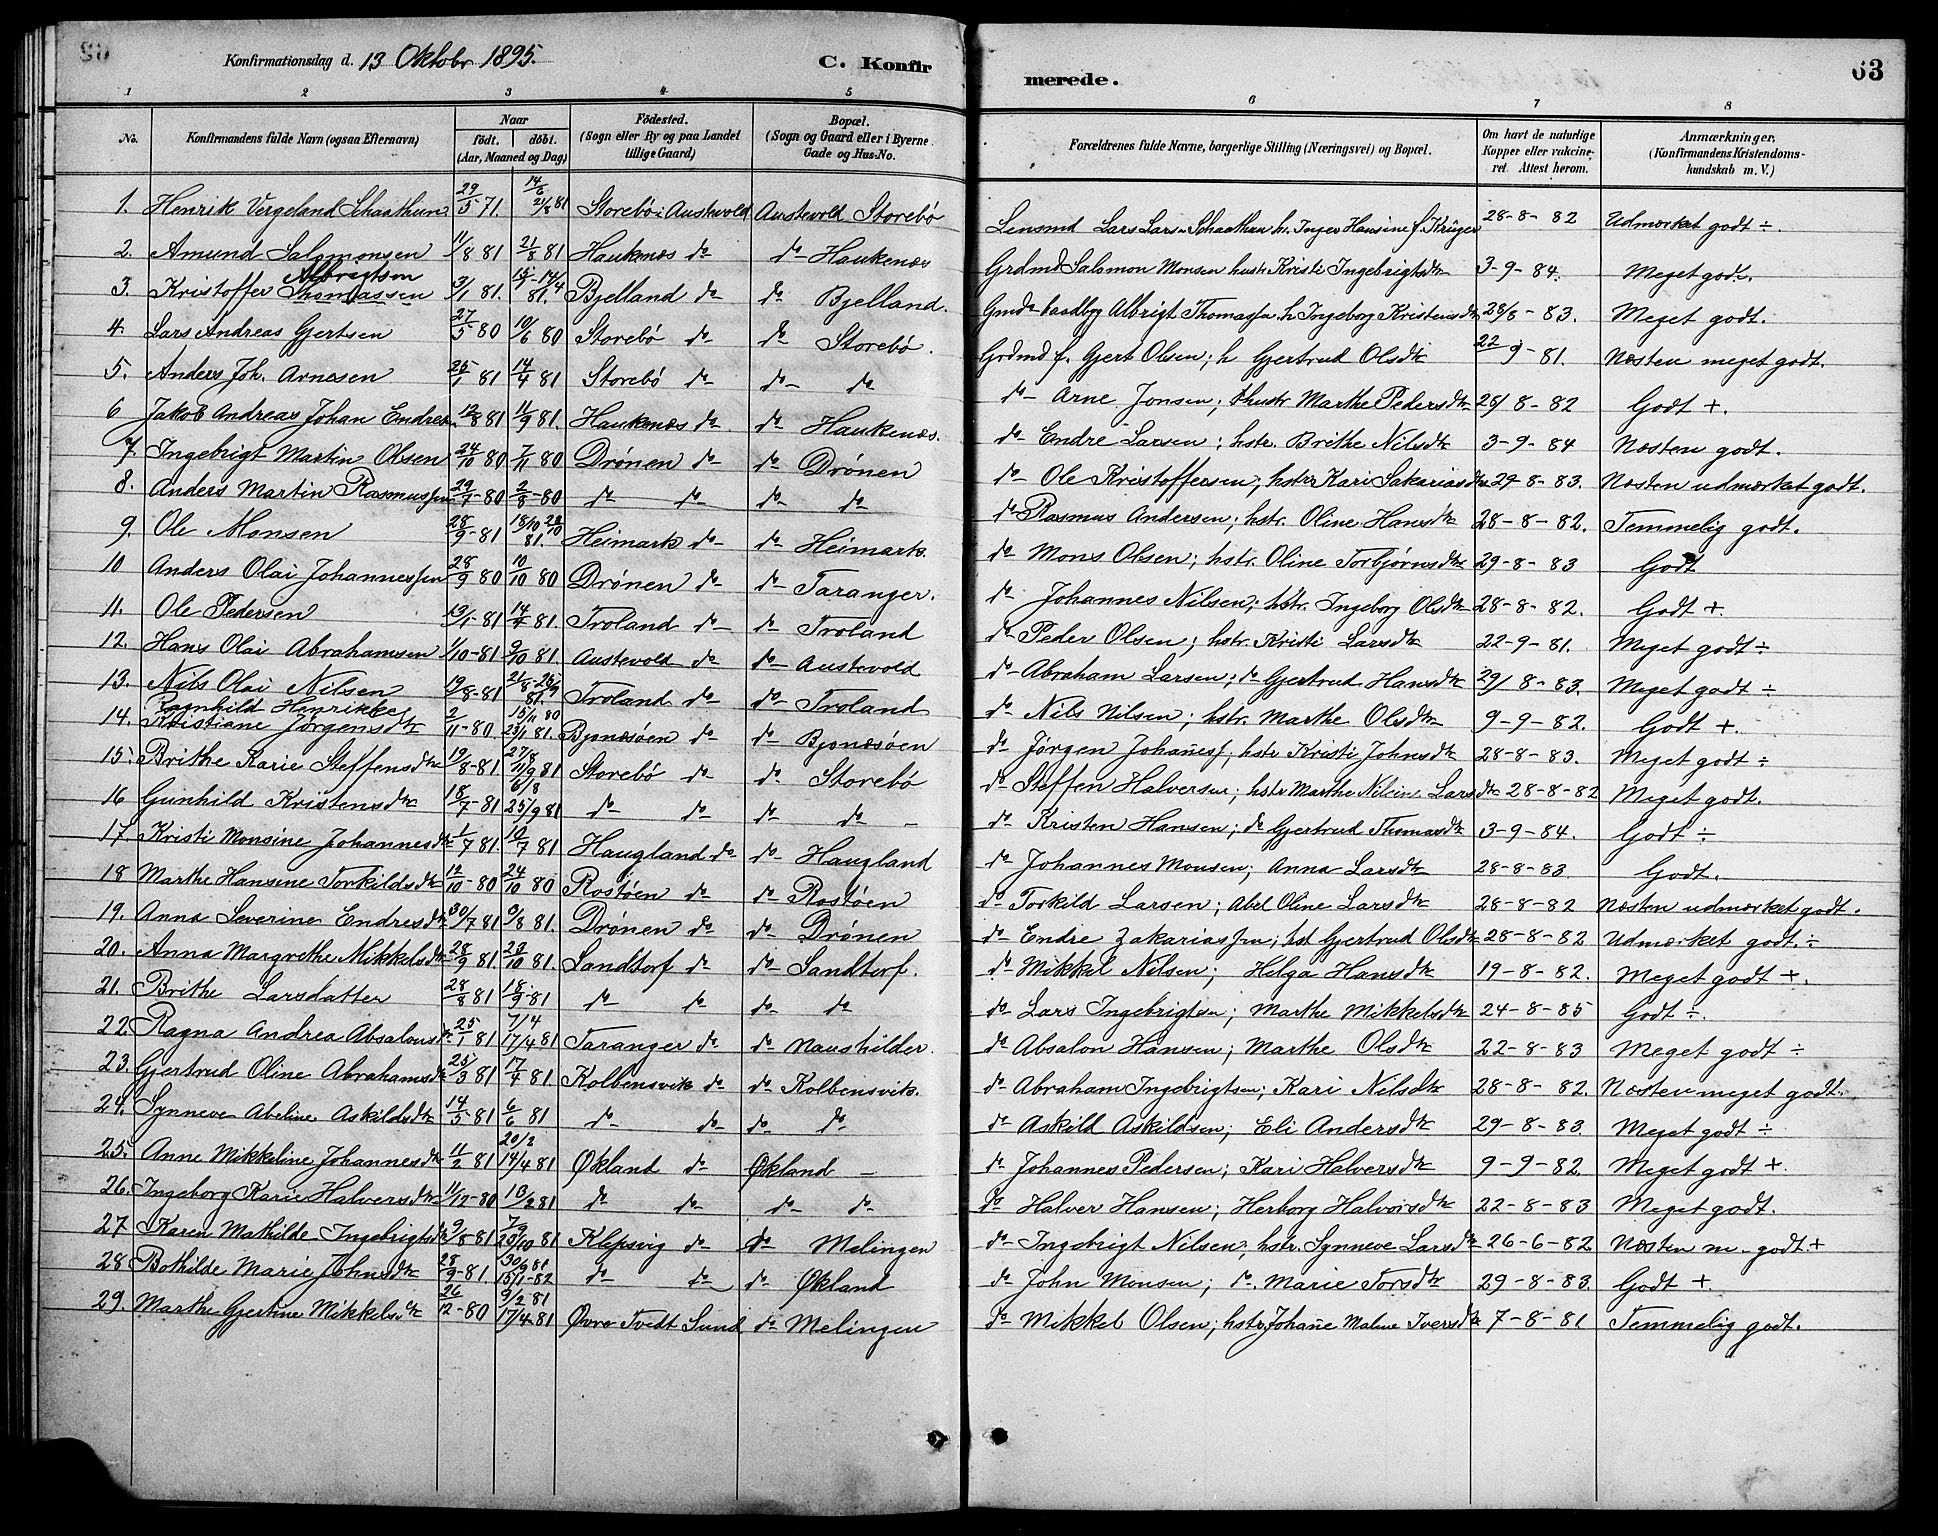 Konfirmationsdag d. 13 Oktobr 1895.
C. Konfirmerede.
63
1 2 3 4 5 6 7 8
No. Konfirmandens fulde Navn (ogsaa Efternavn) Naar født. døbt. (Aar, Maaned og Dag) Fødested. (Sogn eller By og paa Landet tillige Gaard) Bopæl. (Sogn og Gaard eller i Byerne Gade og Hus-No. Forældrenes fulde Navne, borgerlige Stilling (Næringsvei) og Bopæl. Om havt de naturlige Kopper eller vakcineret. Attest herom. Anmærkninger, (Konfirmandens Kristendomskundskab m. V.)
1. Henrik Vergeland Schaathun 29/5 71. 14/6 21/8 81 Storebö i Austevold Austevold Storebö Lensmd Lars Lars. Schaathun h. Inger Hansine f. Krüger 28-8-82 Udmærket godt ÷.
2. Amund Salomonsen 11/8 81 21/8 81 Haukenæs do do Haukenæs Grdmd Salomon Monsen hustr Kristi Ingebrigtsdtr 3-9-84. Meget godt.
3. Kristoffer Thomassen Albrigtsen 3/1 81. 81. Bjelland do do Bjelland. Albrigt Thomassen h Ingeborg Kristensdtr 28/8-83. Meget godt.
4. Lars Andreas Gjertsen 27/5 80 10/6 80 Storebö do do Storebö. Grdmd f. Gjert Olsen; h Gjertrud Olsdtr 22-9-81. Næsten meget godt.
5. Anders Joh. Arnesen 25/1 81 14/4 81 Storebö do do do do Arne Jonsen; hustr Marthe Pedersdtr 28/8-82 Godt +.
6 Jakob Andreas Johan Endres. 12/8 81 11/9 81. Haukenæs do do Haukenæs. do Endre Larsen; hstr. Brithe Nilsdtr 3-9-84 Næsten godt.
7. Ingebrigt Martin Olsen 24/10 80 7/11 80 Drönen do do Drönen do Ole Kristoffersen; hstr Kari Sakariasdtr 29-8-83. Næsten udmærket godt.
8. Anders Martin Rasmussen 29/7-80 2/8-80 do do do do do Rasmus Andersen; hstr. Oline Hansdtr 28-8-82. Temmelig godt.
9. Ole Monsen 28/9-81 18/10 81. Heimark do do Heimark do Mons Olsen; hstr. Oline Torbjørnsdtr 29-8-83 Godt
10 Anders Olai Johannessen 28/9 80 10/10 80 Drönen do do Taranger. do Johannes Nilsen; hstr. Ingeborg Olsdtr 28-8-82. Godt +
11. Ole Pedersen 13/1-81 14/4 81. Troland do do Troland do Peder Olsen; hstr. Kristi Larsdtr 22-9-81. Meget godt ÷
12. Hans Olai Abrahamsen 1/10-81 9/10 81. Austevold do do Austevold do Abraham Larsen; do Gjertrud Hansdtr 29/8-83. Meget godt ÷
13. Nils Olai Nilsen 19/8-81 21/8-26/9 81. Troland do do Troland do Nils Nilsen; hstr. Marthe Olsdtr 9-9-82. Godt +.
14. Ragnhild Henrikke Kristiane Jørgensdtr 2/11-80. 15/11 80 23/1 81 Bjonæsöen do do Bjonæsöen do Jørgen Johanesf; hstr Kristi Johnsdtr 28-8-83. Meget godt ÷
15. Brithe Karie Steffensdtr 19/8-81 27/8 11/9 81 Storebö do do Storebö do Steffen Halversen; hstr Marthe Larsdtr 28-8-82 Meget godt.
16 Gunhild Kristensdtr 18/7-81 6/8 25/9 81 do do do do do Kristen Hansen; do Gjertrud Thomasdtr 3-9-84. Godt ÷
17. Kristi Monsine Johannesdtr 1/7 81 10/7 81 Haugland do do Haugland do Johannes Monsen; Anna Larsdtr 28-8-83 Godt.
18 Marthe Hansine Torkildsdtr 12/10-80 24/10 80 Rostöen do do Rostöen do Torkild Larsen; Abel Oline Larsdtr 28-8-82 Næsten udmærket godt.
19. Anna Severine Endresdtr 30/7 81 9/8 81. Drönen do do Drönen do Endre Zakariassen; hst Gjertrud Olsdtr 28-8-82 Udmærket godt ÷
20. Anna Margrethe Mikkelsdtr 28/9 81. 23/10 81. Sandtorf do do Sandtorf. do Mikkel Nilsen; Helga Hansdtr 19-8-82. Meget godt +.
21. Brithe Larsdatter 28/8 81 18/9-81 do do do do do Lars Ingebrigtsen; Marthe Mikkelsdtr 24-8-85 Godt ÷.
22. Ragna Andrea Absalonsdtr 25/1 81 7/4 17/4 81 Taranger do do Naushilder. do Absalon Hansen; Marthe Olsdtr 22-8-83 Meget godt ÷
23. Gjertrud Oline Abrahamsdtr 25/3 81 17/4 81 Kolbensvik do do Kolbensvik. do Abraham Ingebrigtsen; Kari Nilsdtr 28-8-82. Næsten meget godt.
24. Synneve Abeline Askildsdtr 14/5 81 6/6 81 do do do do do Askild Askildsen; Eli Andersdtr 29-8-83. Meget godt ÷
25. Anne Mikkeline Johannesdtr 11/2 81 20/2 14/4 81 Økland do Økland do Johannes Pedersen; Kari Halversdtr 9-9-82. Meget godt +.
26. Ingeborg Karie Halversdtr 11/12-80 10/2 81 do do do do do Halver Hansen; Herborg Halvorsdtr 22-8-83 Meget godt.
27 Karen Mathilde Ingebrigtsdtr 9/8-81 7/9 23/10 81 Klepsvig do do Melingen do Ingebrigt Nilsen; hstr. Synneve Larsdtr 26-6-82 Næsten m. godt +
28 Bothilde Marie Johnsdtr 28/9-81 30/9 81 15/1-82 do do do Økland do John Monsen; do. Marie Torsdtr 29-8-83. Godt +.
29. Marthe Gjertine Mikkelsdtr 26/12-80 9/2 81 17/4-81 Øvre Tvedt Sund do Melingen do Mikkel Olsen; hstr Johane Maline Iversdtr 7-8-81 Temmelig godt.